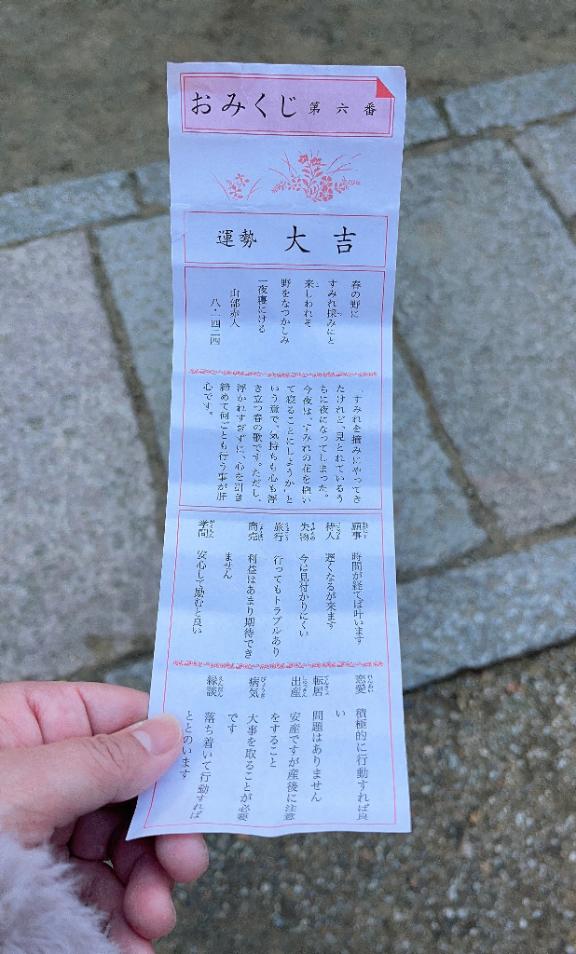 おみくじ 第六番
運勢 大吉
春の野に
すみれ採みにと
来しわれそ
野をなつかしみ
一夜寝にける
山部赤人
八・一四二四
すみれを摘みにやってき
たけれど、見とれているう
ちに夜になってしまった。
今夜は、すみれの花を枕い
て寝ることにしようか、と
いう意で、気持ちも心も浮
き立つ春の歌です。ただし、
浮かれすぎずに、心を引き
締めて何ごとも行う事が肝
心です。
願事 時間が経てば叶います
待人 遅くなるが来ます
失物 今は見付かりにくい
旅行 行ってもトラブルあり
商売 利益はあまり期待でき
ません
学問 安心して励むと良い
恋愛 積極的に行動すれば良
い
転居 問題はありません
出産 安産ですが産後に注意
をすること
病気 大事を取ることが必要
です
縁談 落ち着いて行動すれば
ととのいます